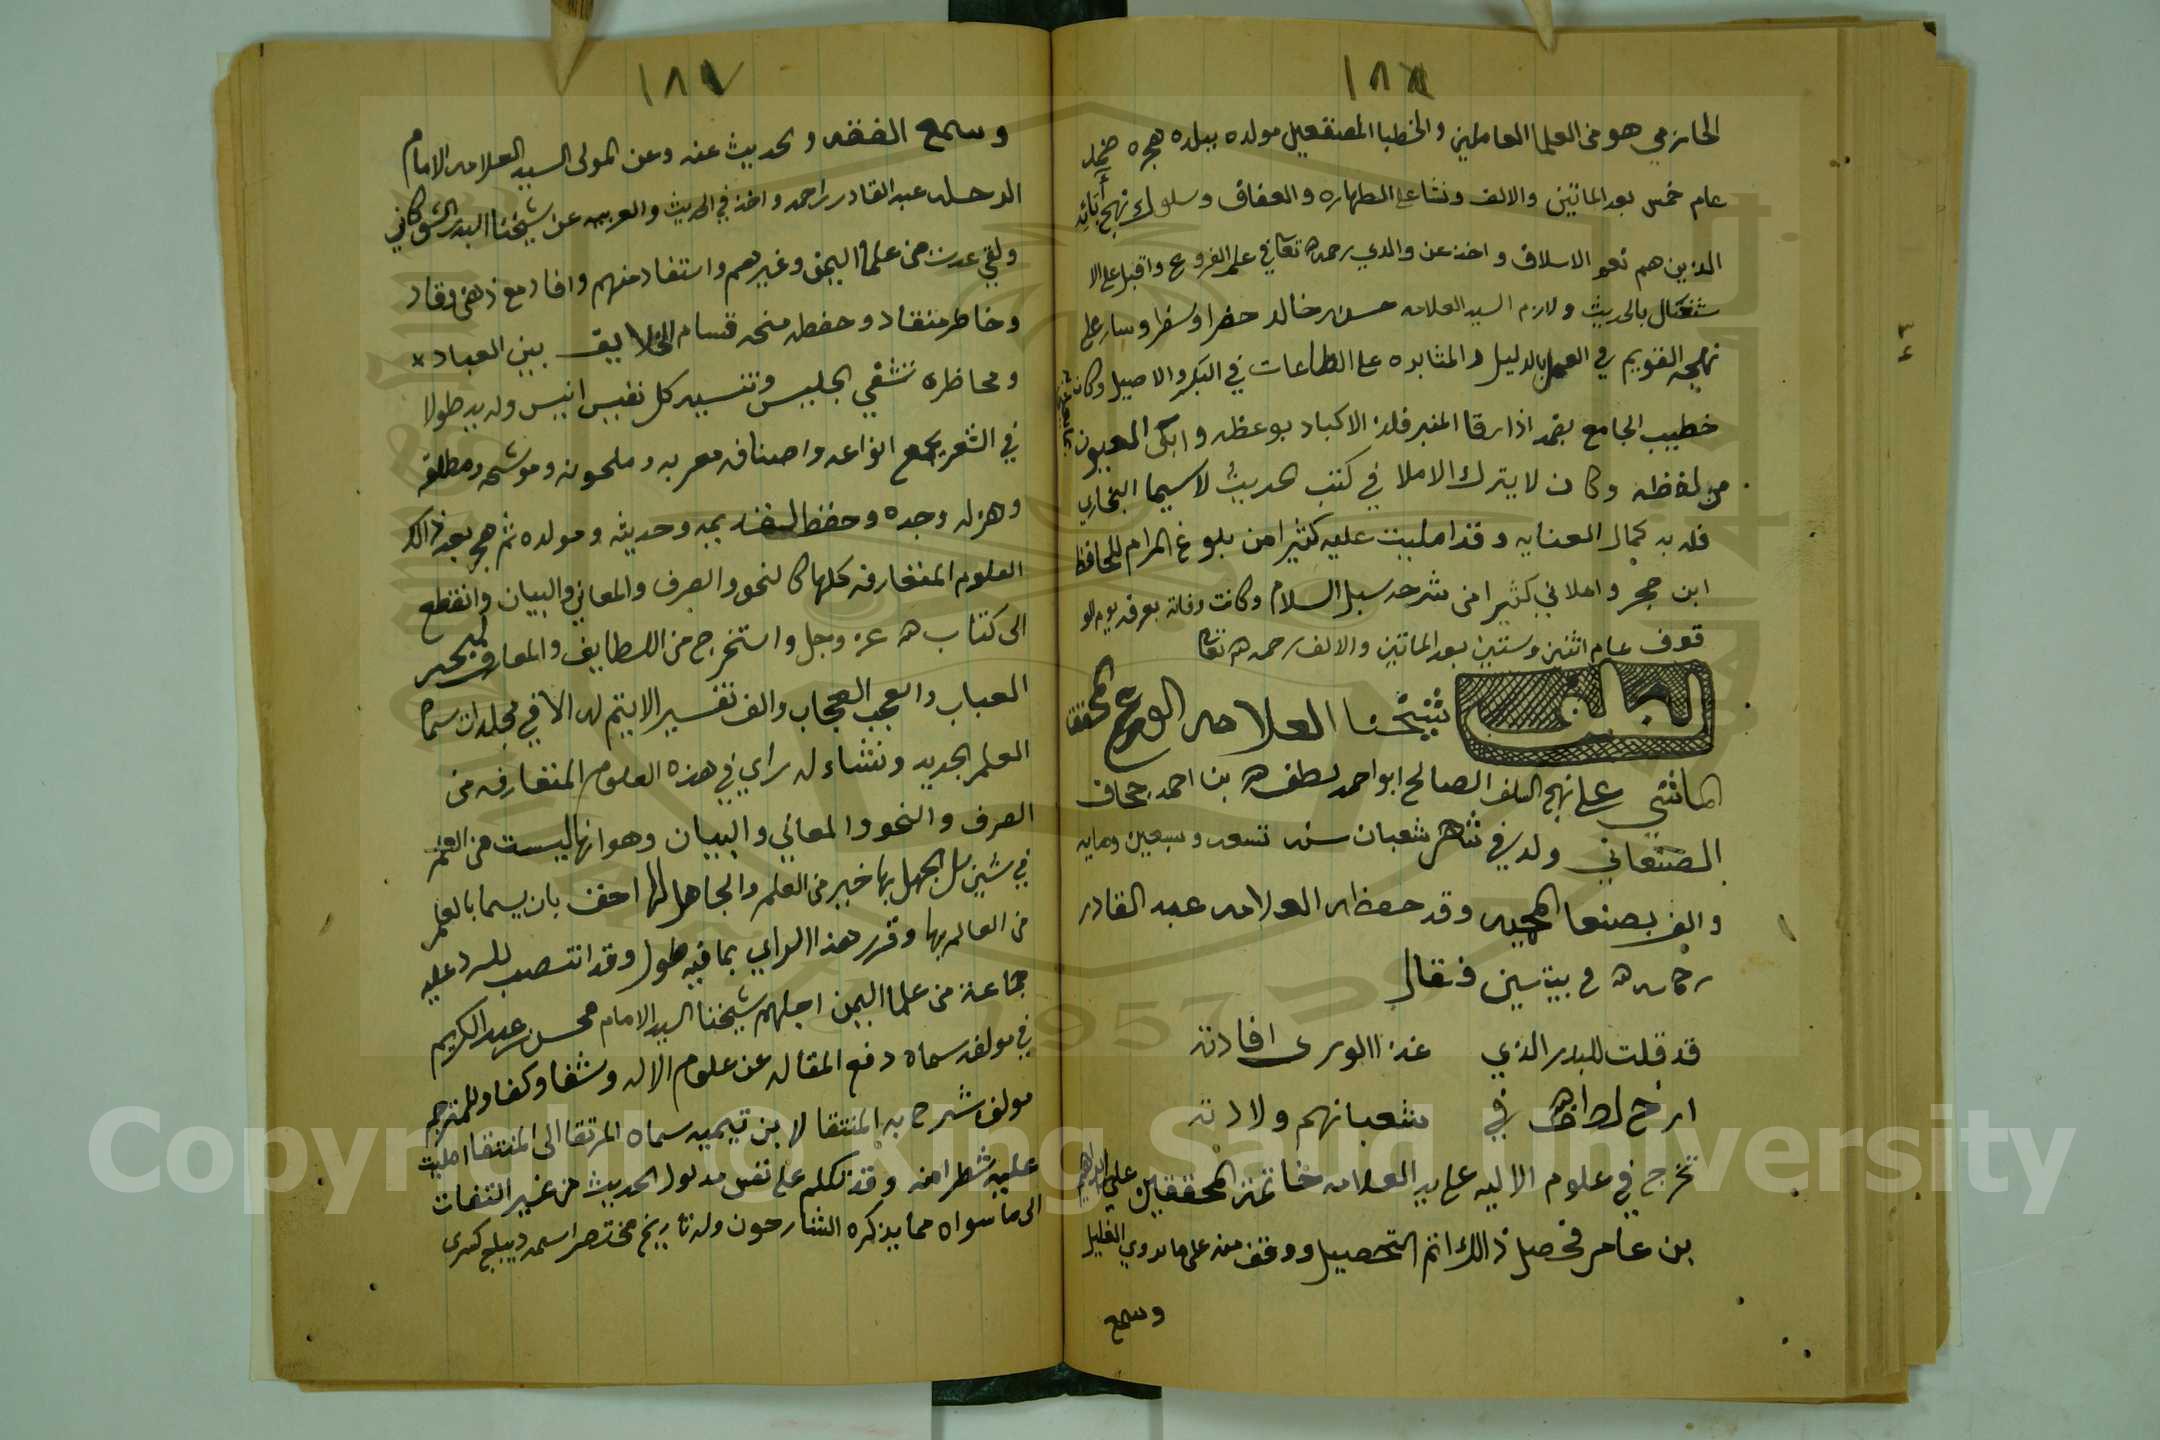 ١٨٨
الحازمي هو من العلما العاملين والخطبا المصقعين مولده ببلده هجره ضمد
عام خمس بعد الماتين والالف ونشا على الطهاره والعفاف وسلوك نهج أبائه
الذين هم نعم الاسلاف واخذ عن والدي رحمه الله تعالى في علم الفروع واقبل على الا
شتغال بالحديث ولازم السيد العلامه حسن بن خالد حضرا وسفرا وسار على
نهجه القويم في العمل بالدليل والمثابره على الطاعات في البكر والاصيل وكان
خطيب الجامع بضمد اذا رقا المنبر فلذ الاكباد بوعظه وابكى العيون
من لفظه وكان لا يترك الاملا في كتب الحديث لاسيما البخاري
فله به كمال العنايه وقد امليت عليه كثيرا من بلوغ المرام للحافظ
ابن حجر واملاني كثيرا من شرحه سبل السلام وكانت وفاته بعرفه يوم الو
قوف عام اثنين وستين بعد الماتين والالف رحمه الله تعالى
شيخنا العلامه الورع المحقق
الماشي على نهج السلف الصالح ابو احمد لطف الله بن احمد جحاف
الصنعاني ولد في شهر شعبان سنه تسعه وسبعين ومايه
والف بصنعا المحميه وقد حفظه العلامه عبد القادر
رحمه الله في بيتين فقال
قد قلت للبدر الذي عند الورى افادته
ارخ لطف الله في شعبانهم ولادته
تخرج في علوم الاليه على يد العلامه خاتمة المحققين علي بن ابراهيم
بن عامر فحصل ذالك اتم التحصيل ووقف منه على ما يروي الغليل
وسمع
١٨٧
وسمع الفقه والحديث عنه وعن المولى السيد العلامه الامام
الرحله عبد القادر بن احمد واخذ في الحديث والعربيه عن شيخنا البدر الشوكاني
ولقي عدة من علما اليمن وغيرهم واستفاد منهم وافاد مع ذهن وقاد
وخاطر منقاد وحفظ منحه قسام الخلايق بين العباد
ومحاظره تشفي الجليس وتنسيه كل نفيس انيس وله يد طولا
في الشعر بجمع انواعه واصنافه معربه وملحونه وموشحه ومطلقه
وهزله وجده وحفظ لقديمه وحديثه ومولده ثم هجر بعد ذالك
العلوم المتعارفه كلها كالنحو والصرف والمعاني والبيان وانقطع
الى كتاب الله عز وجل واستخرج من اللطايف والمعارف لبحر
العباب والعجب العجاب والف تفسير الا يتم له الا في مجلدات سماه
العلم الجديد ونشاء له راي في هذه العلوم المتعارفه من
الصرف والنحو والمعاني والبيان وهو انها ليست من العلم
في شين بل الجهل بها خير من العلم والجاهل لها احق بان يسما بالعلم
من العالم بها وقرر هذا الراي بما فيه طول وقد انتصب للرد عليه
جماعة من علما اليمن اجلهم شيخنا السيد الامام محسن بن عبد الكريم
في مولف سماه دفع المقاله عن علوم الاله وشفا وكفا وللمترجم
مولف شرح به المنتقا لابن تيميه سماه المرتقا الى المنتقا امليت
عليه شطرا منه وقد تكلم على نفس مدلول الحديث من غير التفات
الى ما سواه مما يذكره الشارحون وله تاريخ مختصر اسمه ديباج كسرى